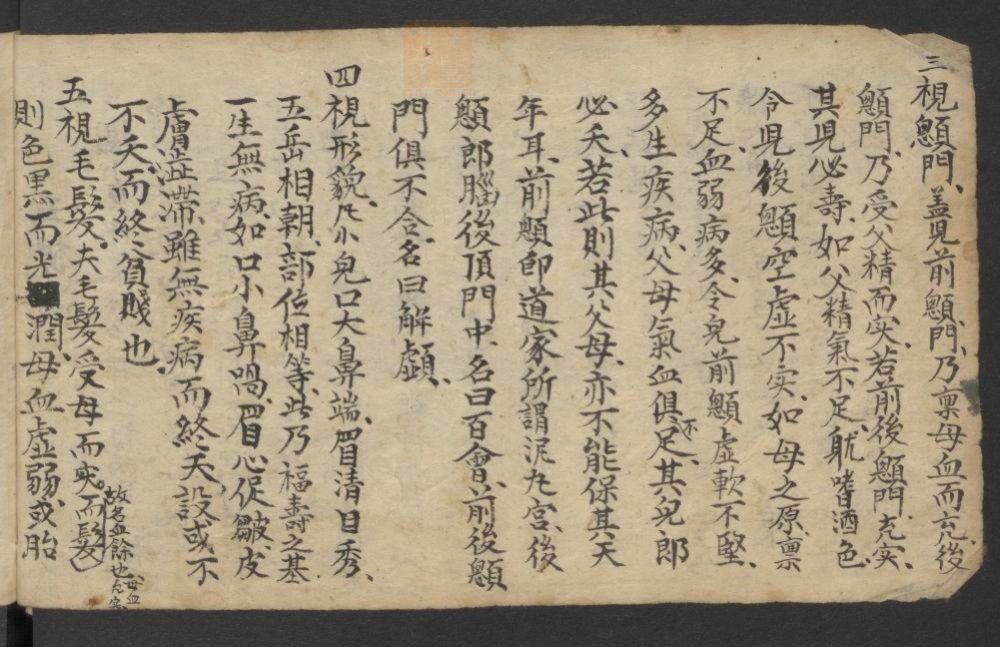 三視顖門、盖児前顖門、乃禀母血而充、後
顖門、乃受父精而实、若前後顖門充实、
其児必壽、如父精氣不足、躭嗜酒色、
令児後顖空虚不实、如母之原禀
不足、血弱病多、令兒前顖虚軟不堅、
多生疾病、父母氣血俱不足、其兒郎
必夭、若此則其父母、亦不能保其天
年耳、前顖即道家所謂泥九宮、後
顖郎腦後頂門中、名曰百會、前後顖
門俱不合、名曰解顱、
四視形貌、凡小兒口大鼻端、眉清目秀、
五岳相朝、部位相等、此乃福壽之基
一生無病、如口小鼻喎、眉心促皺、皮
膚澁滯、雖無疾病而終夭、設或不
不夭、而終貧賤也、
五視毛髮、夫毛髮受母而实、而髮
故名血餘也、母血
充实
則色黒而光潤、母血虚弱、或胎